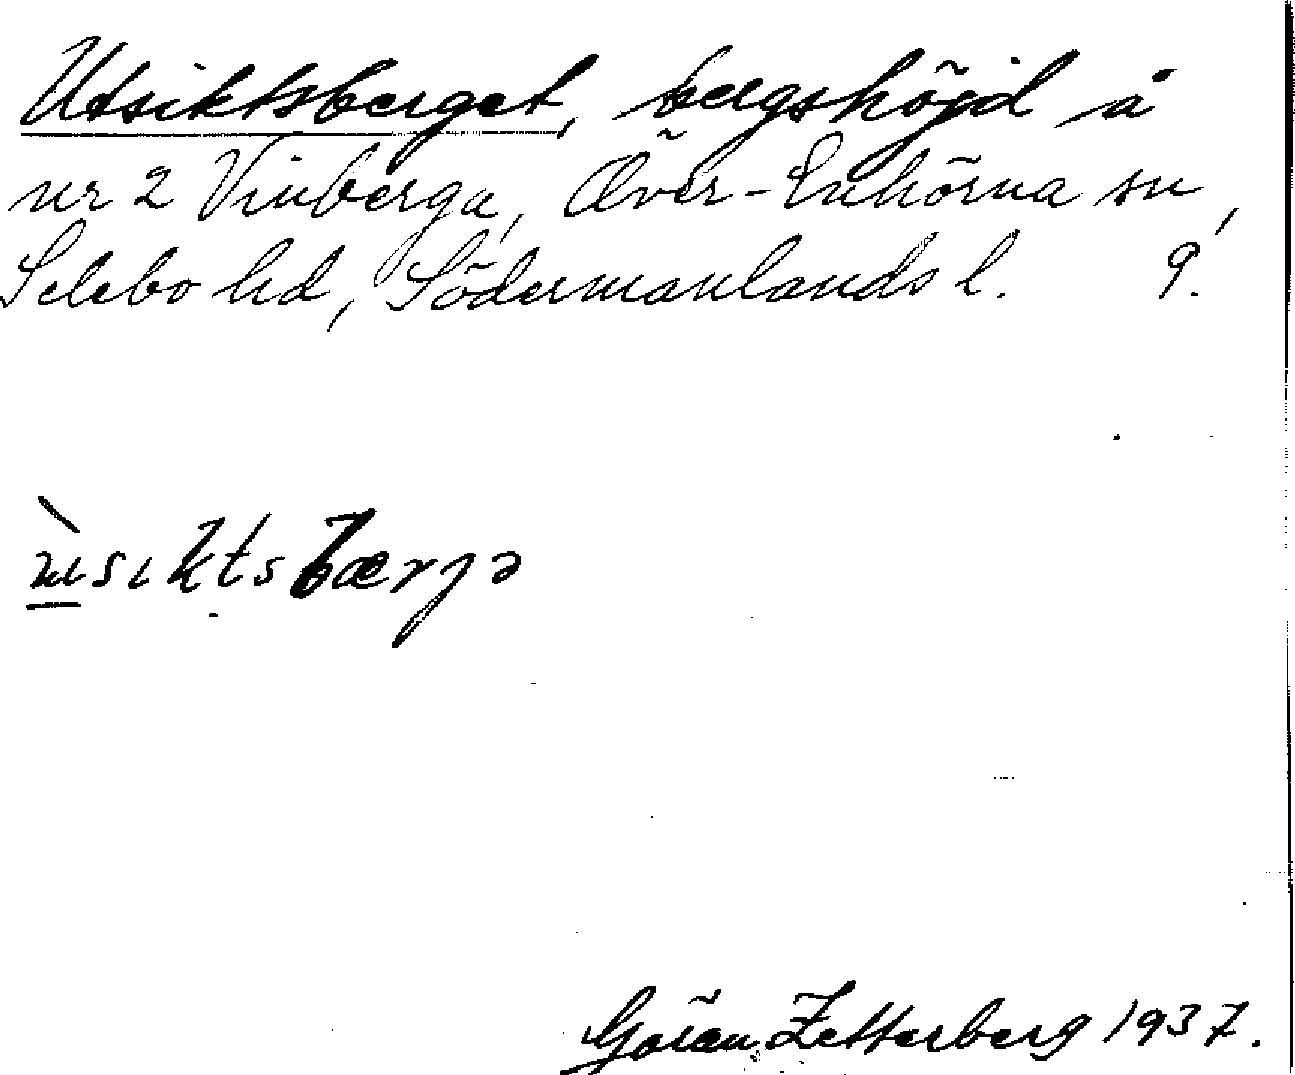 Utsiktsberget, bergshöjd å
nr 2 Vinberga, Över-Enhörna sn,
Selebo hd, Södermanlands l. 9.
ùsiktsbærjə
Göran Zetterberg 1937.